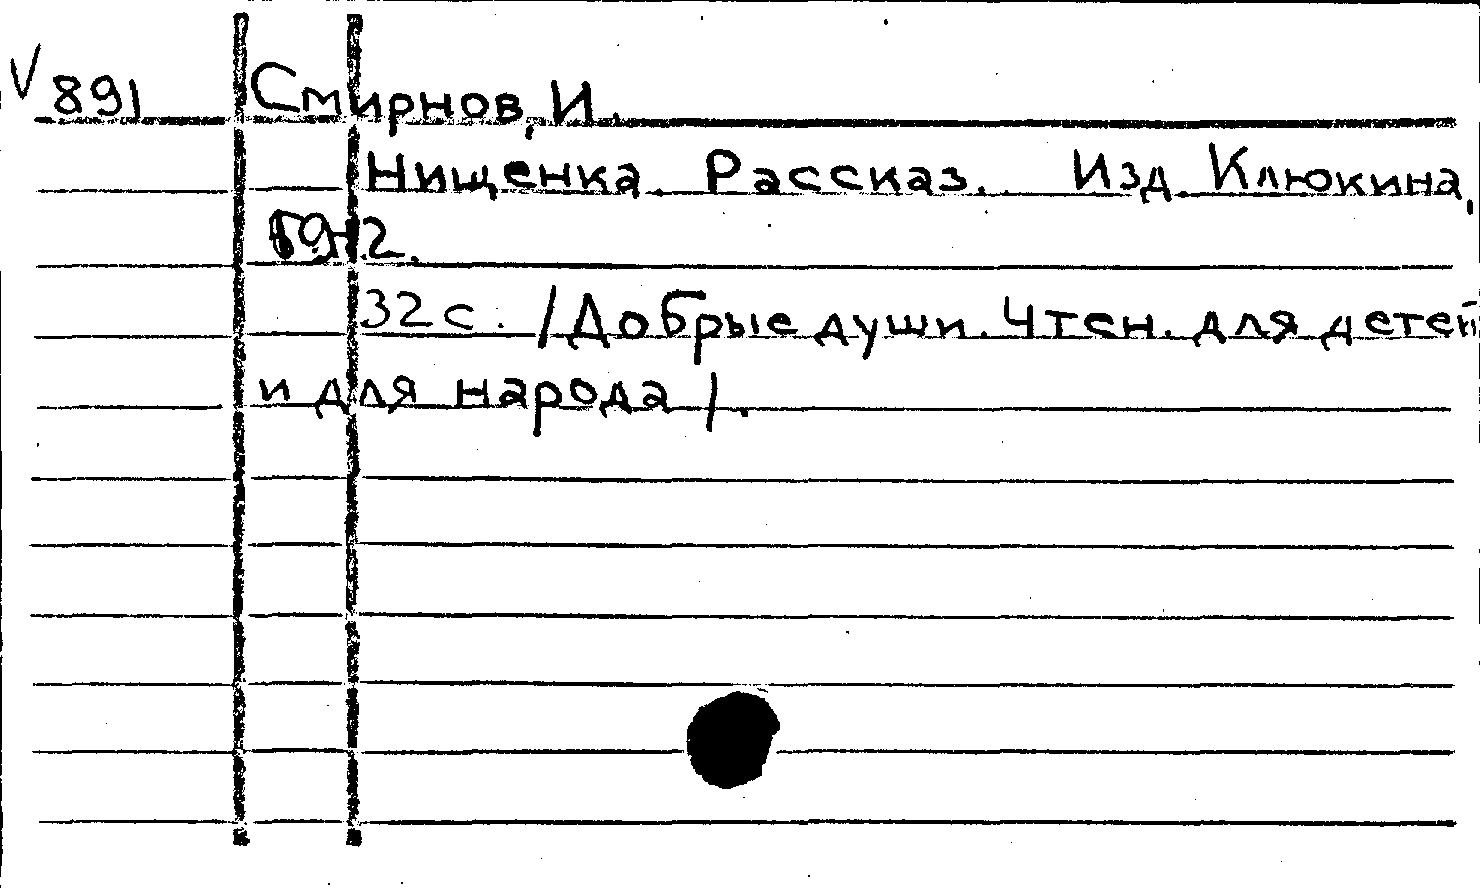 V 891 Смирнов, И.
Нищенка. Рассказ. Изд. Клюкина,
32 с. /Добрые души. Чтен. для детей
и для народа/.